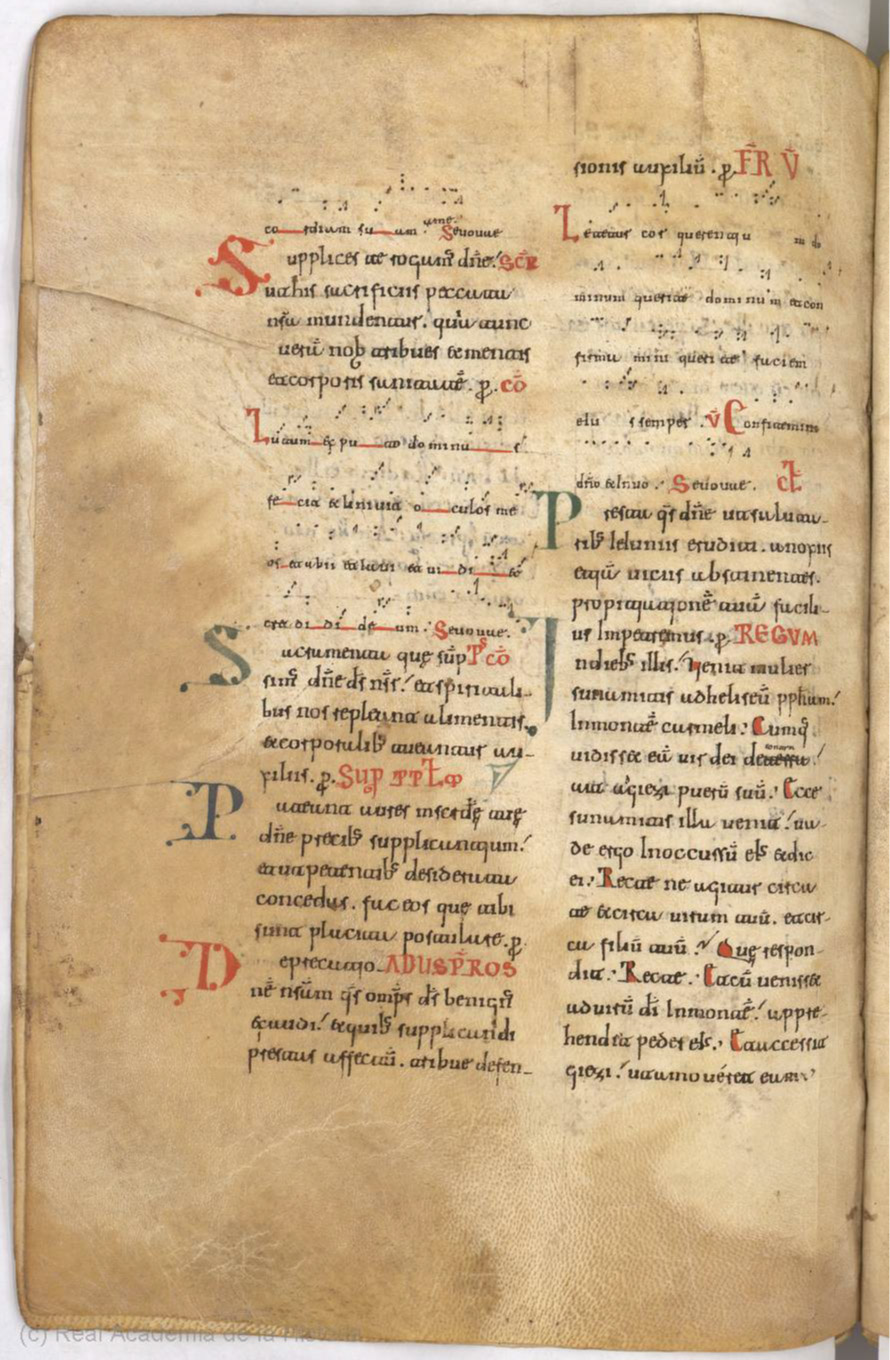 co rdium su um ame. Seuouae
Supplices te rogamꝰ dn̄e. SCR
ut his sacrificiis peccata
nr̄a mundentur. quia tunc
uerā nob tribues & mentis
et corporis sanitatē. p. cō
Lutum ex pu to dominu s
fe cit & liniuit o culos me
os et abii et laui et ui di et
cre di di de o um. Seuouae.
Sacramenta que sūp Ps cō
simꝰ dn̄e ds nr̄s. et spiritali-
bus nos repleant alimentis,
& corporalib tueantur au-
xiliis. p. SUP PPLM
Pateant aures mscdie tue
dn̄e precib supplicantium.
et ut petentib desiderata
concedas. fac eos que tibi
sunt placita postulare. p
Deprecatio AD UESPROS
nē nr̄am qs omps ds benignꝰ
exaudi. & quib supplicandi
prestas affectū. tribue defen-
sionis auxiliū. p. FR V
Letetur cor querentiu m do
minum querite dominum et con
firmamini querite faciem
eius semper. V Confitemini
dn̄o & inuo. Seuouae. CL
Presta qs dn̄e ut saluta-
rib ieiuniis eruditi. a noxiis
etiā uiciis abstinentes.
propitiationē tuā facili-
us impetremus. p. REGVM
In dieb illis. uenit mulier
sunamitis ad heliseū pphtam.
In montē carmeli. Cumq
uidisset eū uir dei de contra.
ait ad giezi puerū suū. Ecce
sunamitis illa uenit. ua-
de ergo In occursū eis & dic
ei. Recte ne agitur circa
te & circa uirum tuū. et cir-
ca filiū tuū. Que respon-
dit. Recte. Et cū uenisset
ad uirū di In monte. appre-
hendit pedes eis. Et accessit
giezi. ut amoueret eum.